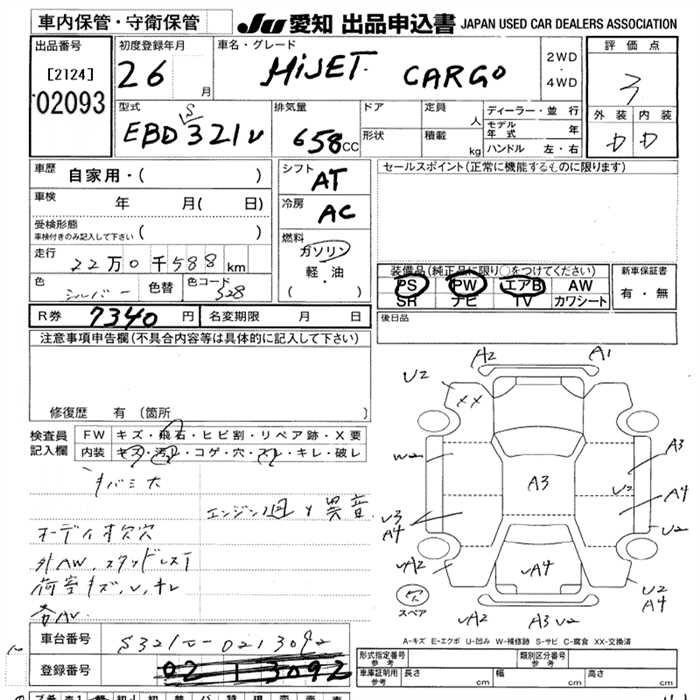 車内保管・守衛保管
JU 愛知 出品申込書 JAPAN USED CAR DEALERS ASSOCIATION
出品番号
[2124]
02093
初度登録年月
26 月
車名・グレード
HiJET CARGO
2WD
・
4WD
評価点
3
外装 内装
D D
型式
EBD S321V
排気量
658CC
ドア
形状
定員
人
積載
kg
ディーラー・並行
モデル年式 年
ハンドル 左・右
車歴 自家用・( )
車検 年 月( 日)
受検形態
車検付きのみ記入して下さい ( )
走行
22万0千588km
色
シルバー
色替
色コード
S28
シフト
AT
冷房
AC
燃料
ガソリン
軽・油
( )
セールスポイント(正常に機能するものに限ります)
装備品(純正品に限り○をつけてください)
PS PW エアB AW
SR ナビ TV カワシート
新車保証書
有・無
後日品
R券 7340円 名変期限 月 日
注意事項申告欄(不具合内容等は具体的に記入して下さい)
修復歴 有(箇所 )
検査員記入欄
FW キズ・飛石・ヒビ割・リペア跡・X要
内装 キズ・汚れ・コゲ・穴・スレ・キレ・破レ
エンジン廻り異音
オーディオ欠穴
外AW、スタッドレス
荷室キズ、U、キレ
車台番号 S321V-0213092
登録番号
A2 A1
U2
XX
W2
A3
A3
U2
A4
U3
A4
U2
A2
A4
スペア
A2
A3 U2
U2
A4
A-キズ E-エクボ U-凹み W-補修跡 S-サビ C-腐食 XX-交換済
形式指定番号
参考
類別区分番号
参考
車庫証明用
参考
長さ cm 幅 cm 高さ cm